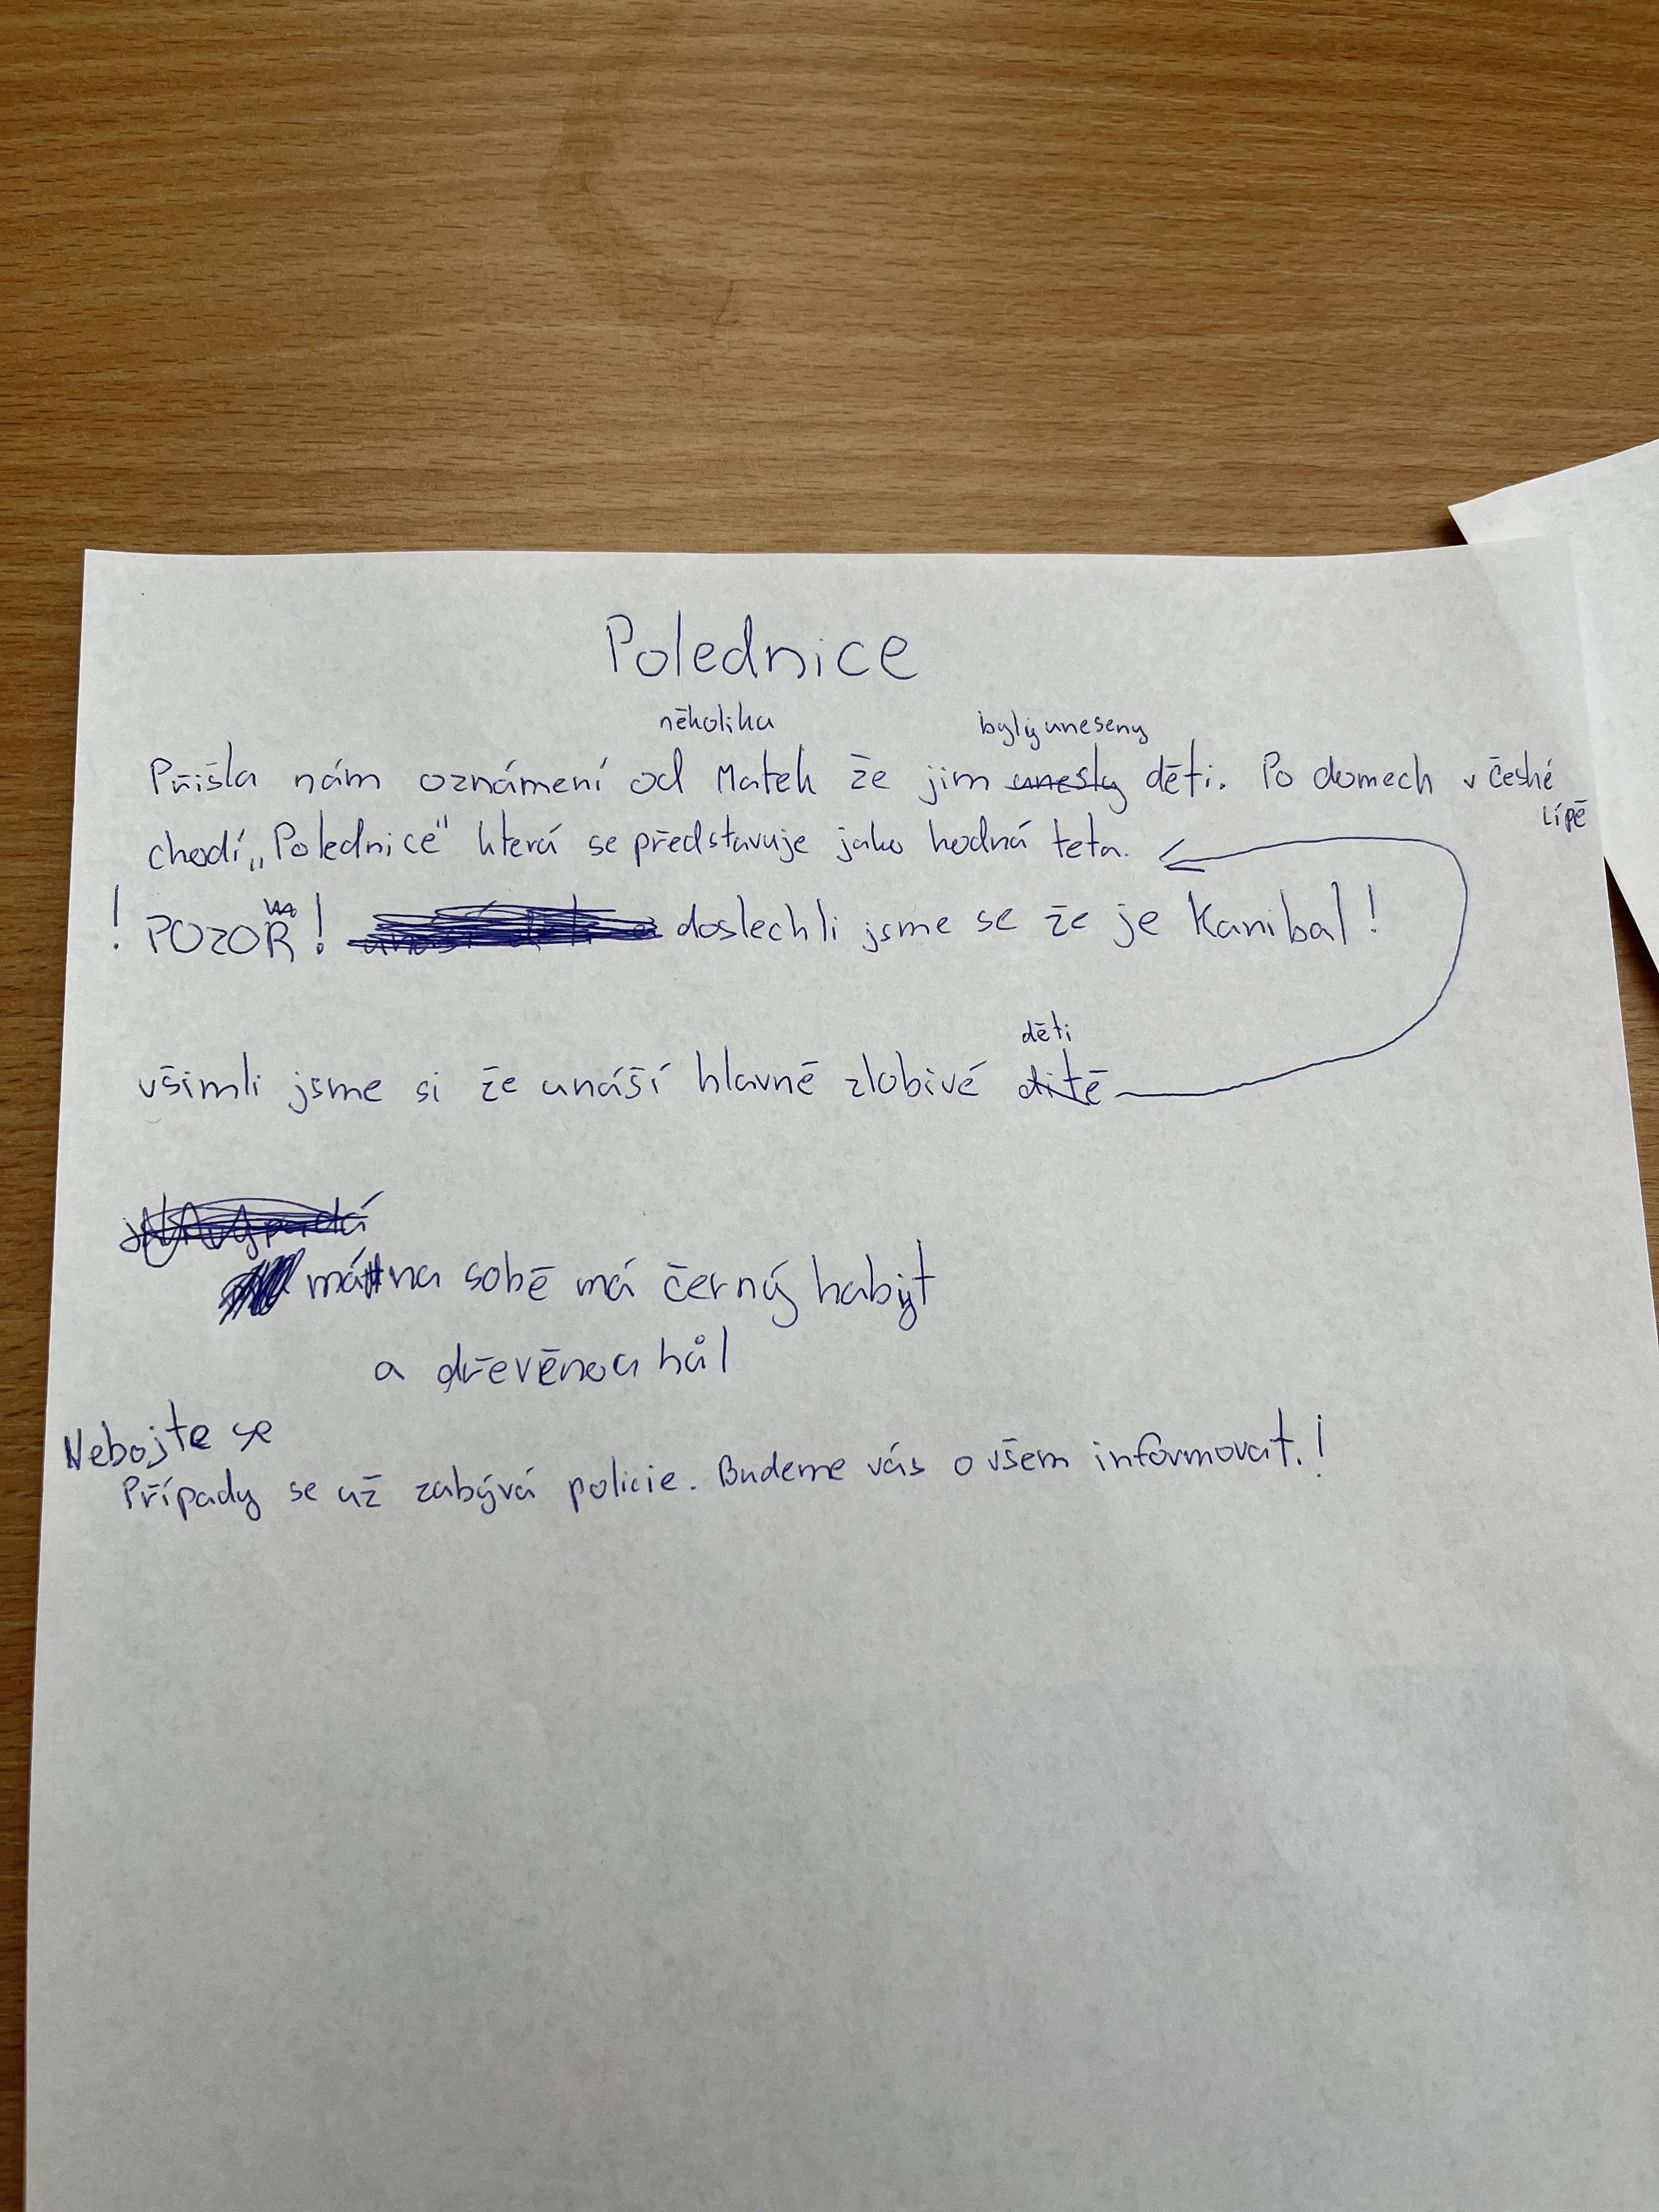 Polednice
několika byly uneseny
Přišla nám oznámení od Matek že jim unesly děti. Po domech v české
lípě
chodí „Polednice" která se představuje jako hodná teta.
! POZOR! doslechli jsme se že je Kanibal!
děti
všimli jsme si že unáší hlavně zlobivé dítě
má na sobě má černý habit
a dřevěnou hůl
Nebojte se
Případy se už zabývá policie. Budeme vás o všem informovat.!